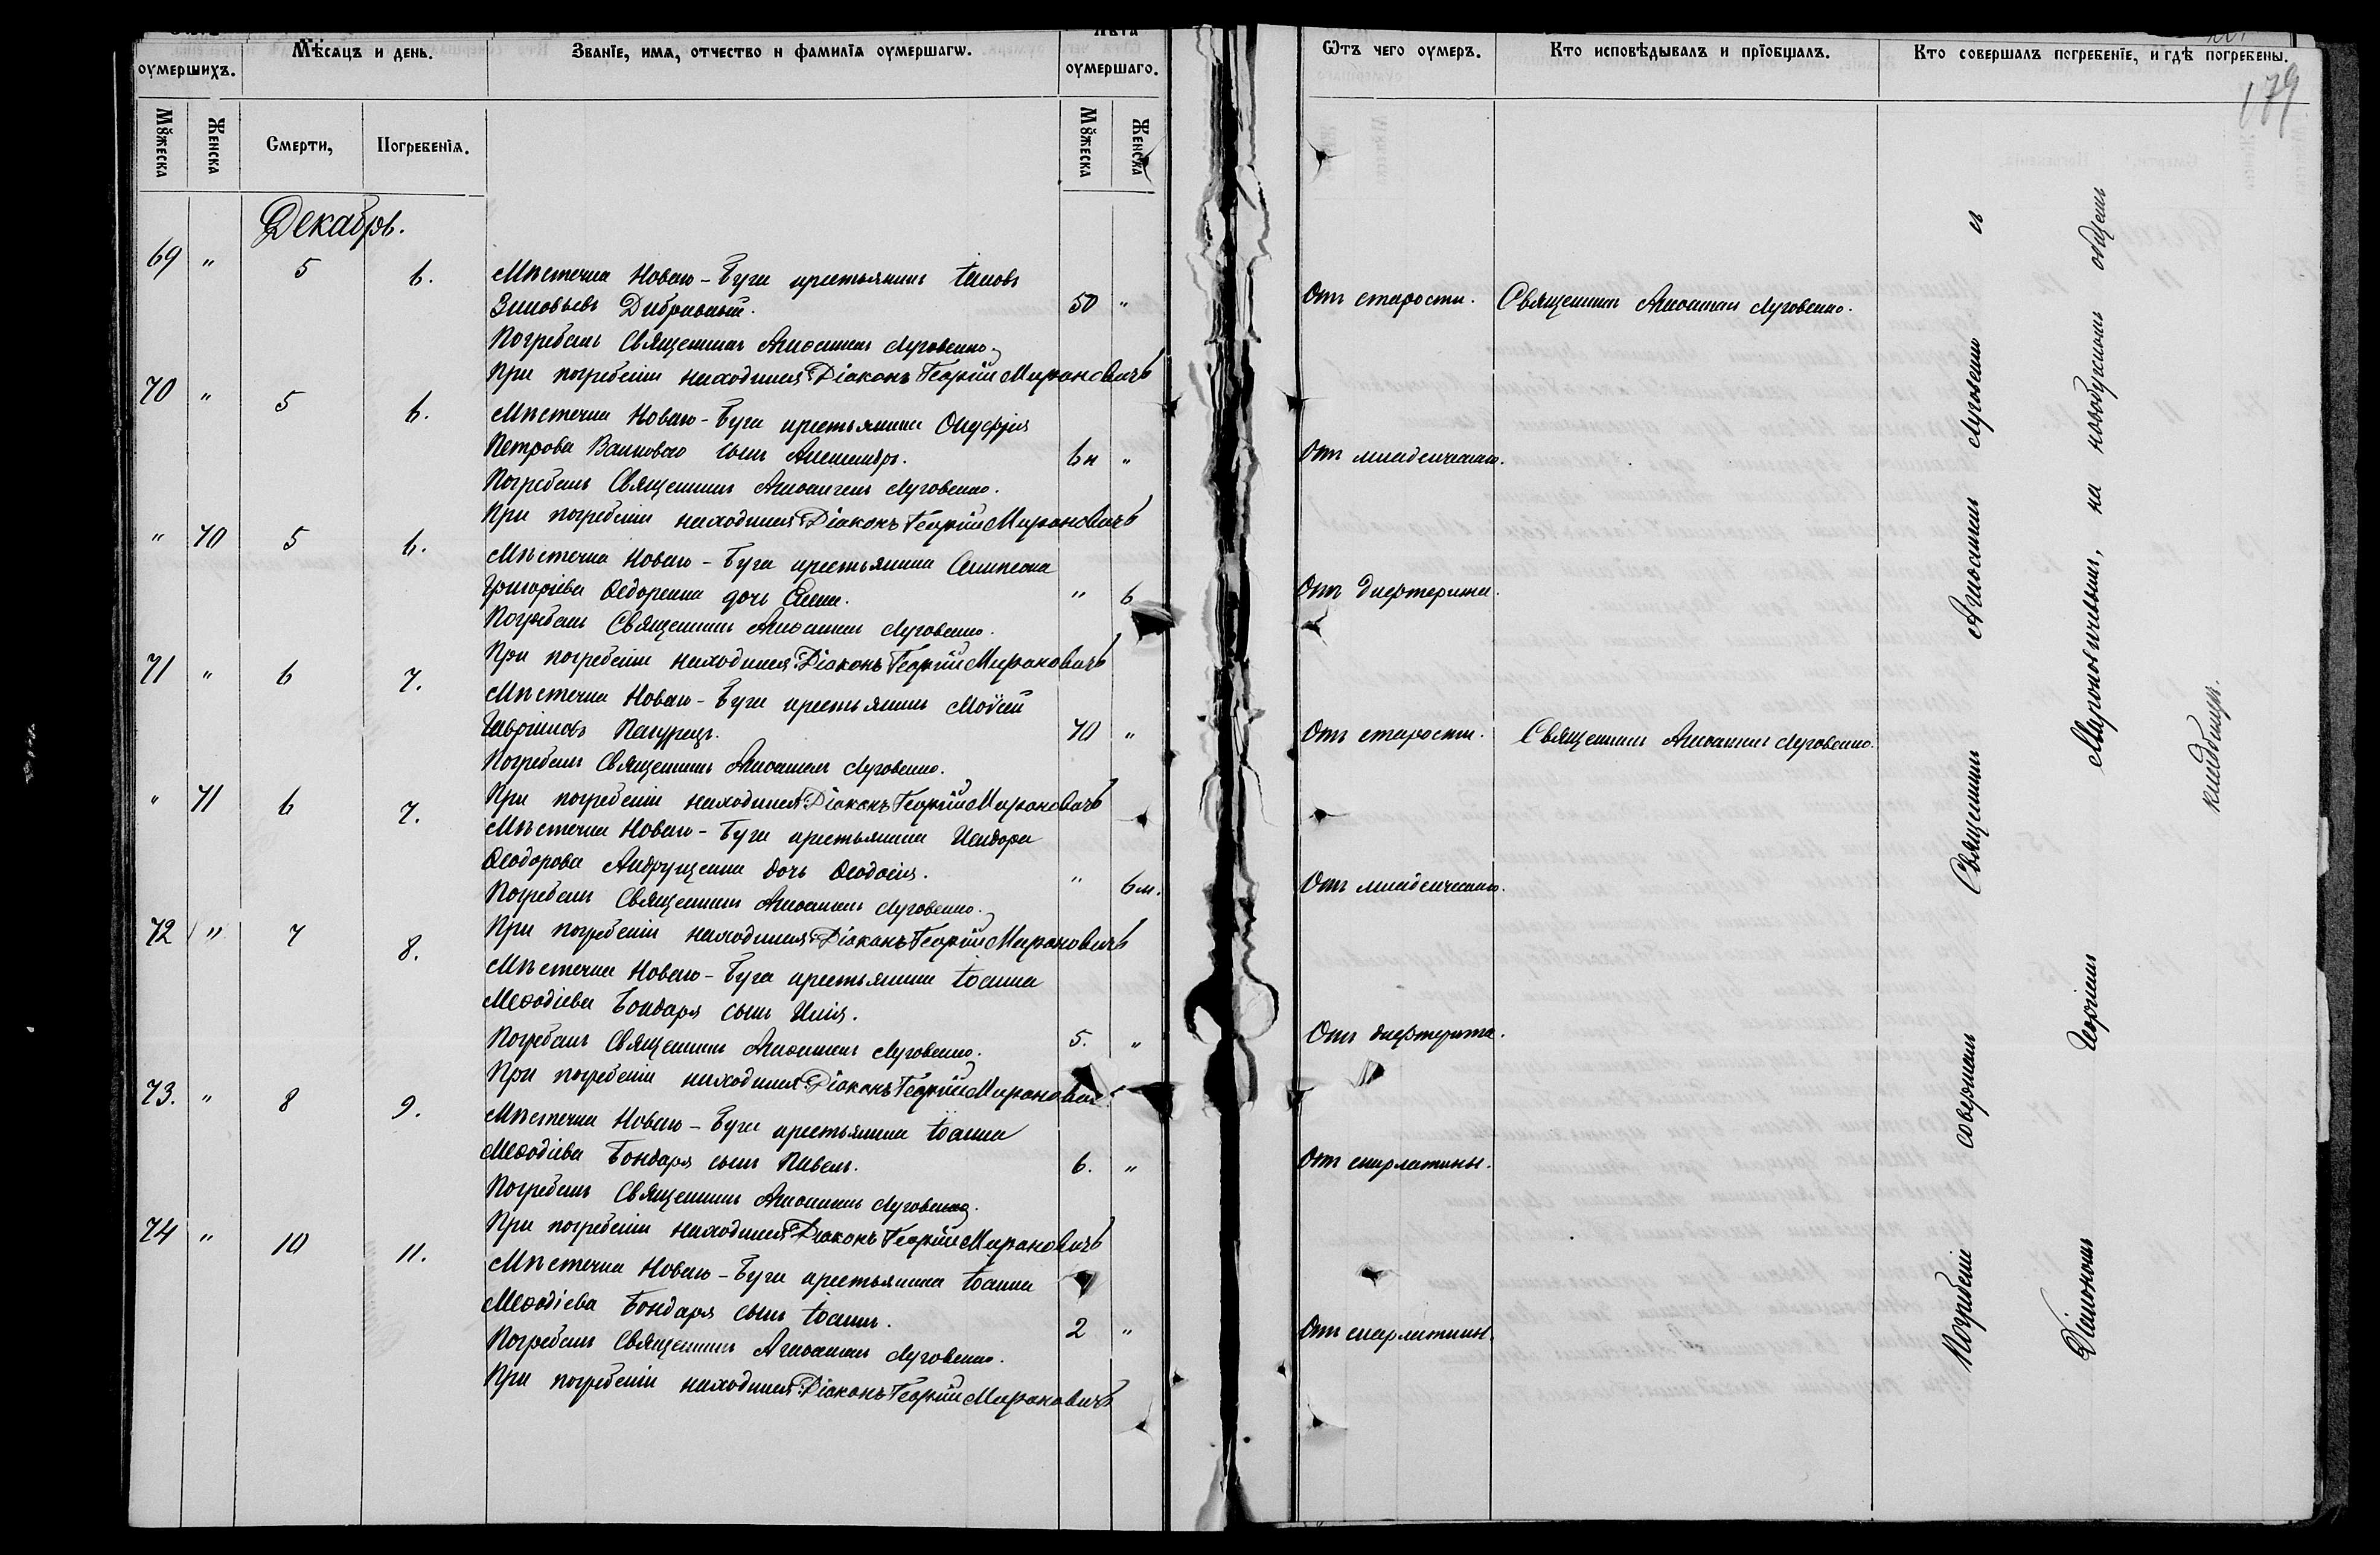 оумершихъ.
Мѣсѧцъ и день.
Званїе, имѧ, отчество и фамилїѧ оумершагѡ.
Лѣта
оумершаго.
Ѿтъ чего оумеръ.
Кто исповѣдывалъ и прїобщалъ.
Кто совершалъ погребенїе, и гдѣ погребены.
179
Мꙋжеска
Женска
Смерти,
Погребенїѧ.
Мꙋжеска
Женска
Декабрь.
69 " 5 6. Мѣстечка Новаго-Буга крестьянинъ
Зиновьевъ 50 " Отъ старости. Священникъ Луговенко.
Погребалъ Священникъ Луговенко.
При погребеніи находился Діаконъ Георгій Мироновичъ
70 " 5 6. Мѣстечка Новаго-Буга крестьянина Онуфрія
Петрова сынъ Александръ. 6 н " Отъ младенческаго.
Погребалъ Священникъ Луговенко.
При погребеніи находился Діаконъ Георгій Мироновичъ
" 70 5 6. Мѣстечка Новаго-Буга крестьянина Симеона
Григоріева Ѳедоренка дочь Елена. " 6 Отъ дифтерита.
Погребалъ Священникъ Луговенко.
При погребеніи находился Діаконъ Георгій Мироновичъ
71 " 6 7. Мѣстечка Новаго-Буга крестьянинъ Моѵсей
Гавриловъ 70 " Отъ старости. Священникъ Луговенко.
Погребалъ Священникъ Луговенко.
При погребеніи находился Діаконъ Георгій Мироновичъ
" 71 6 7. Мѣстечка Новаго-Буга крестьянина Исидора
Ѳеодорова Андрущенка дочь Ѳеодосія. " 6 м. Отъ младенческаго.
Погребалъ Священникъ Луговенко.
При погребеніи находился Діаконъ Георгій Мироновичъ
72 " 7 8. Мѣстечка Новаго-Буга крестьянина Іоанна
Меѳодіева Бондаря сынъ Илія.
Погребалъ Священникъ Луговенко. 5. " Отъ дифтерита.
При погребеніи находился Діаконъ Георгій Мироновичъ
73. " 8 9. Мѣстечка Новаго-Буга крестьянина Іоанна
Меѳодіева Бондаря сынъ Павелъ. 6. " Отъ скарлатины.
Погребалъ Священникъ Луговенко.
При погребеніи находился Діаконъ Георгій Мироновичъ
74 " 10 11. Мѣстечка Новаго-Буга крестьянина Іоанна
Меѳодіева Бондаря сынъ Іоаннъ. 2 " Отъ скарлатины.
Погребалъ Священникъ Луговенко.
При погребеніи находился Діаконъ Георгій Мироновичъ
Погребеніе совершалъ Священникъ Луговенко съ
Діакономъ Георгіемъ Мироновичемъ, на новобугскомъ общемъ
кладбищѣ.